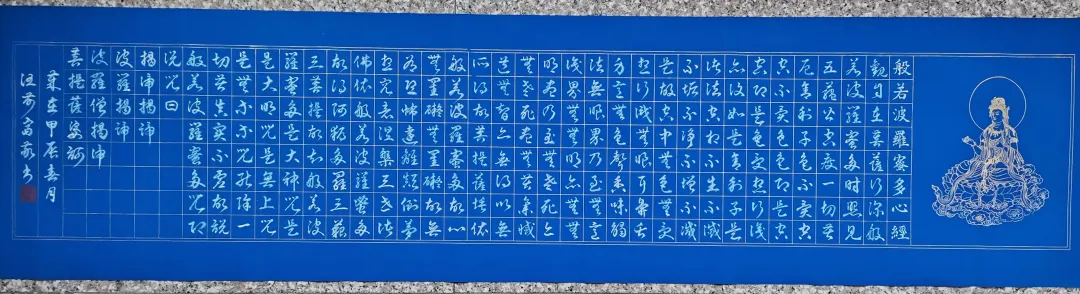 般若波羅蜜多心經
觀自在菩薩行深般
若波羅蜜多時照見
五蘊皆空度一切苦
厄舍利子色不異空
空不異色色即是空
空即是色受想行識
亦復如是舍利子是
諸法空相不生不滅
不垢不淨不增不減
是故空中無色無受
想行識無眼耳鼻舌
身意無色聲香味觸
法無眼界乃至無意
識界無無明亦無無
明盡乃至無老死亦
無老死盡無苦集滅
道無智亦無得以無
所得故菩提薩埵依
般若波羅蜜多故心
無罣礙無罣礙故無
有恐怖遠離顛倒夢
想究竟涅槃三世諸
佛依般若波羅蜜多
故得阿耨多羅三藐
三菩提故知般若波
羅蜜多是大神咒是
是大明咒是無上咒
是無等等咒能除一
切苦真實不虛故說
般若波羅蜜多咒即
說咒曰
揭諦揭諦
波羅揭諦
波羅僧揭諦
菩提薩婆訶
歲在甲辰春月